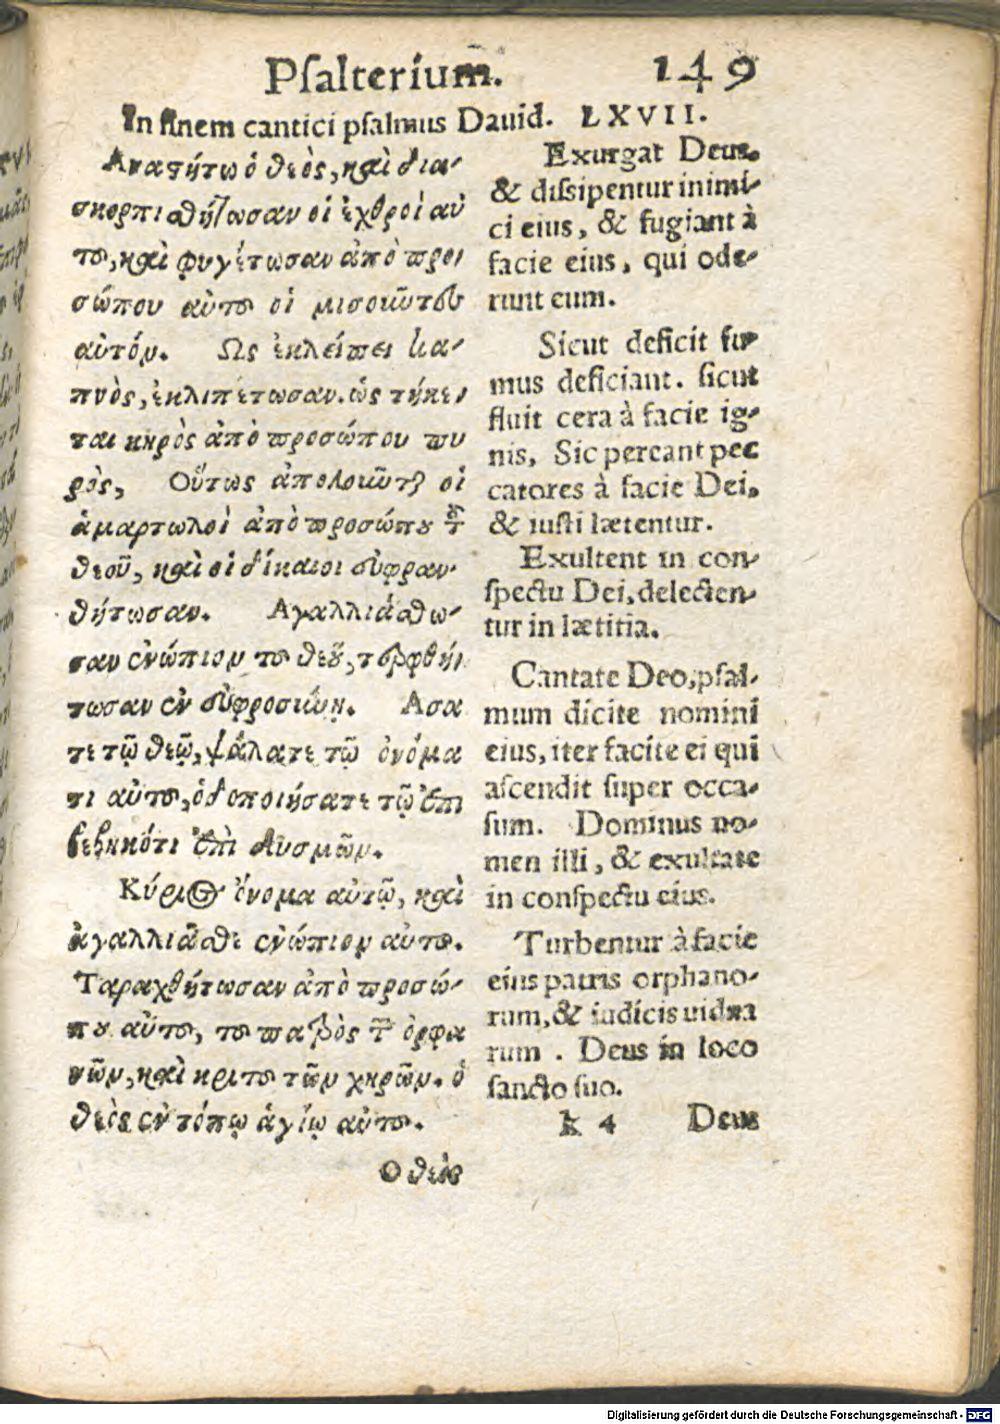 Psalterium. 149
In finem cantici psalmus Dauid. LXVII.
Αναστήτω ὁ θεὸς, καὶ δια-
σκορπισθήτωσαν οἱ ἐχθροὶ αὐ
τοῦ, καὶ φυγέτωσαν ἀπὸ προ-
σώπου αὐτοῦ οἱ μισοῦντες
αὐτόν. Ως ἐκλείπει κα-
πνὸς, ἐκλιπέτωσαν. ὡς τήκε-
ται κηρὸς ἀπὸ προσώπου πυ
ρὸς, Οὕτως ἀπολοῦνται οἱ
ἁμαρτωλοὶ ἀπὸ προσώπου τοῦ
θεοῦ, καὶ οἱ δίκαιοι εὐφραν-
θήτωσαν. Αγαλλιάσθω-
σαν ἐνώπιον τοῦ θεοῦ, τερφθή-
τωσαν ἐν εὐφροσύνῃ. Ασα
τε τῷ θεῷ, ψάλατε τῷ ὀνόμα
τι αὐτοῦ, ὁδοποιήσατε τῷ ἐπι
βεβηκότι ἐπὶ δυσμῶν.
Κύριος ὄνομα αὐτῷ, καὶ
ἀγαλλιᾶσθε ἐνώπιον αὐτοῦ.
Ταραχθήτωσαν ἀπὸ προσώ-
που αὐτοῦ, τοῦ πατρὸς τῶν ὀρφα
νῶν, καὶ κριτοῦ τῶν χηρῶν. ὁ
θεὸς ἐν τόπῳ ἁγίῳ αὐτοῦ.
Ο θεὸς
Exurgat Deus,
& dissipentur inimi-
ci eius, & fugiant à
facie eius, qui ode-
runt eum.
Sicut deficit fu-
mus deficiant. sicut
fluit cera à facie ig-
nis, Sic pereant pec
catores à facie Dei,
& iusti lætentur.
Exultent in con-
spectu Dei, delecten-
tur in lætitia.
Cantate Deo, psal-
mum dicite nomini
eius, iter facite ei qui
ascendit super occa-
sum. Dominus no-
men illi, & exultate
in conspectu eius.
Turbentur à facie
eius patris orphano-
rum, & iudicis uidua
rum. Deus in loco
sancto suo.
k 4 Deus
Digitalisierung gefördert durch die Deutsche Forschungsgemeinschaft - DFG